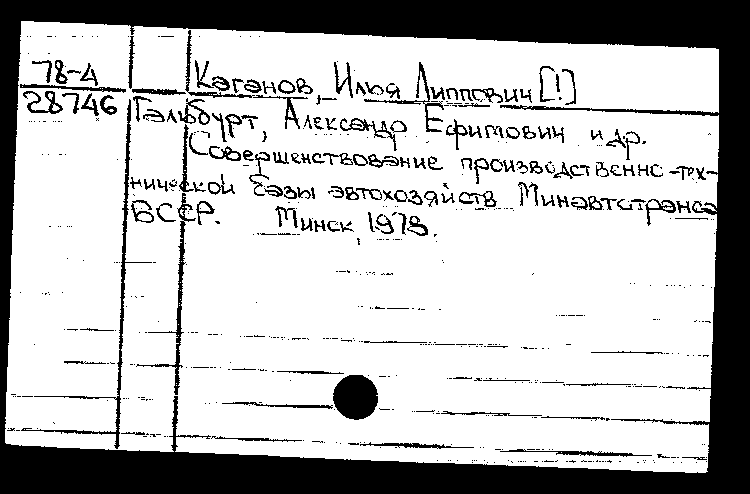 78-4 Каганов, Илья Липпович [!]
28746 Гальбурт, Александр Ефимович и др.
Совершенствование производственно-тех-
нической базы автохозяйств Минавтотранса
БССР. Минск, 1978.